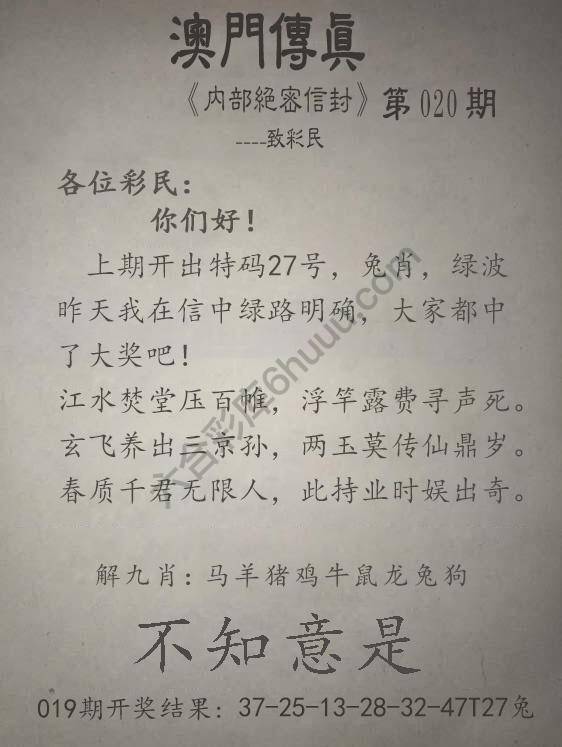 澳門傳真
《内部絶密信封》第020期
----致彩民
各位彩民：
你们好！
上期开出特码27号，兔肖，绿波
昨天我在信中绿路明确，大家都中
了大奖吧！
江水焚堂压百帷，浮竿露费寻声死。
玄飞养出三京孙，两玉莫传仙鼎岁。
春质千君无限人，此持业时娱出奇。
解九肖：马羊猪鸡牛鼠龙兔狗
不知意是
019期开奖结果：37-25-13-28-32-47T27兔
六合彩库6huuu.com